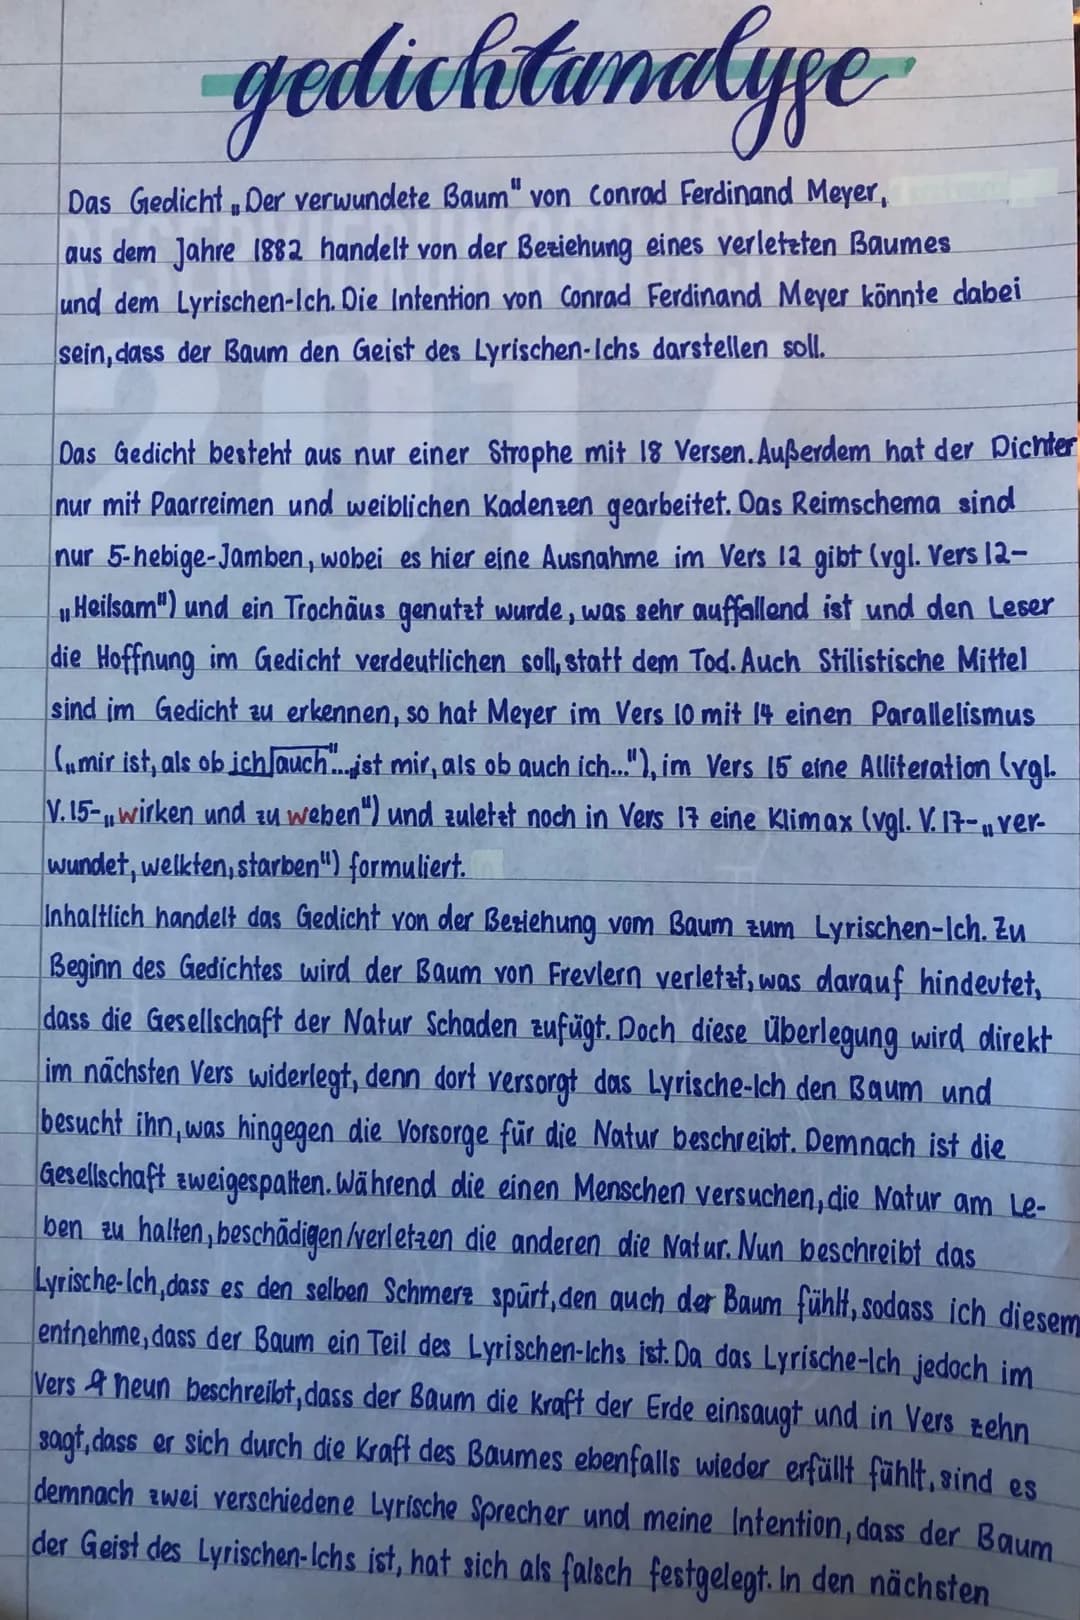 gedichtanalyse
Das Gedicht „Der verwundete Baum" von Conrad Ferdinand Meyer,
aus dem Jahre 1882 handelt von der Beziehung eines verletzten Baumes
und dem Lyrischen-Ich. Die Intention von Conrad Ferdinand Meyer könnte dabei
sein, dass der Baum den Geist des Lyrischen-Ichs darstellen soll.
Das Gedicht besteht aus nur einer Strophe mit 18 Versen. Außerdem hat der Dichter
nur mit Paarreimen und weiblichen Kadenzen gearbeitet. Das Reimschema sind
nur 5-hebige-Jamben, wobei es hier eine Ausnahme im Vers 12 gibt (vgl. Vers 12-
„Heilsam") und ein Trochäus genutzt wurde, was sehr auffallend ist und den Leser
die Hoffnung im Gedicht verdeutlichen soll, statt dem Tod. Auch Stilistische Mittel
sind im Gedicht zu erkennen, so hat Meyer im Vers 10 mit 14 einen Parallelismus
(„mir ist, als ob ich auch"...„ist mir, als ob auch ich..."), im Vers 15 eine Alliteration (vgl.
V. 15-„wirken und zu weben") und zuletzt noch in Vers 17 eine Klimax (vgl. V. 17-„ver-
wundet, welkten, starben") formuliert.
Inhaltlich handelt das Gedicht von der Beziehung vom Baum zum Lyrischen-Ich. Zu
Beginn des Gedichtes wird der Baum von Frevlern verletzt, was darauf hindeutet,
dass die Gesellschaft der Natur Schaden zufügt. Doch diese Überlegung wird direkt
im nächsten Vers widerlegt, denn dort versorgt das Lyrische-Ich den Baum und
besucht ihn, was hingegen die Vorsorge für die Natur beschreibt. Demnach ist die
Gesellschaft zweigespalten. Während die einen Menschen versuchen, die Natur am Le-
ben zu halten, beschädigen/verletzen die anderen die Natur. Nun beschreibt das
Lyrische-Ich, dass es den selben Schmerz spürt, den auch der Baum fühlt, sodass ich diesem
entnehme, dass der Baum ein Teil des Lyrischen-Ichs ist. Da das Lyrische-Ich jedoch im
Vers neun beschreibt, dass der Baum die Kraft der Erde einsaugt und in Vers zehn
sagt, dass er sich durch die Kraft des Baumes ebenfalls wieder erfüllt fühlt, sind es
demnach zwei verschiedene Lyrische Sprecher und meine Intention, dass der Baum
der Geist des Lyrischen-Ichs ist, hat sich als falsch festgelegt. In den nächsten